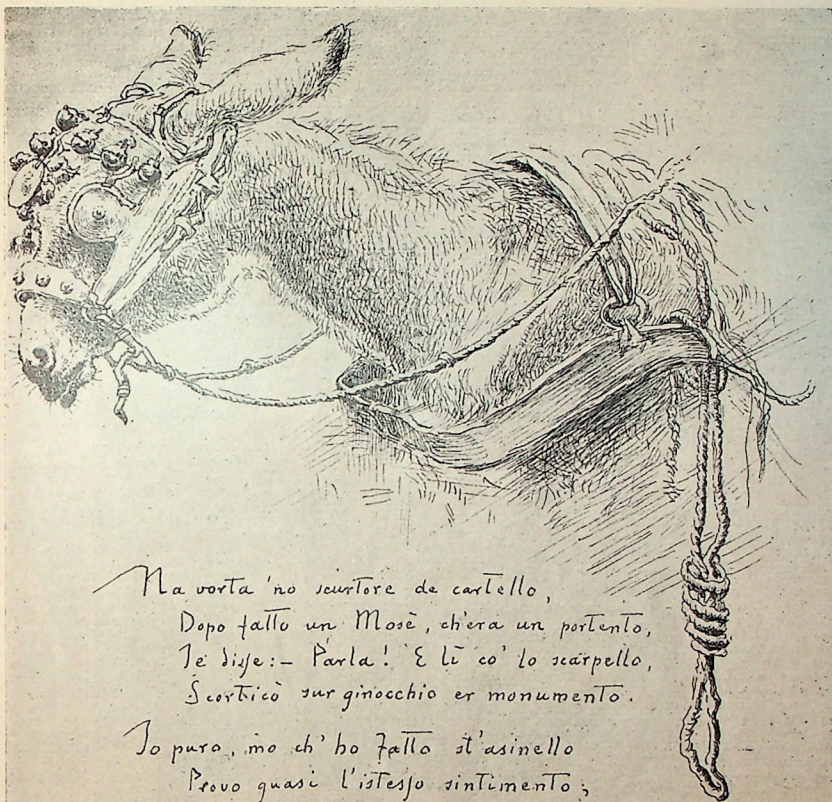 Na vorta 'no scurtore de cartello,
Dopo fatto un Mosè, ch'era un portento,
Je disse:– Parla! E lì co' lo scarpello,
Scorticò sur ginocchio er monumento.
Io puro, mo ch'ho fatto st'asinello
Provo quasi l'istesso sintimento;